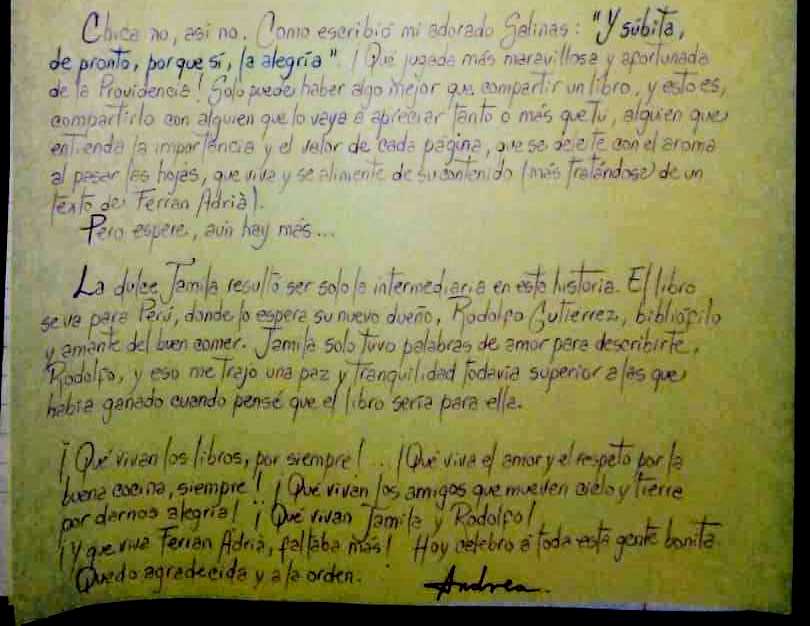 Chica no, así no. Como escribió mi adorado Salinas: "Y súbita,
de pronto, porque sí, la alegría". ¡Qué jugada más maravillosa y afortunada
de la Providencia! Solo puede haber algo mejor que compartir un libro, y esto es,
compartirlo con alguien que lo vaya a apreciar tanto o más que tu, alguien que
entienda la importancia y el valor de cada página, que se deleite con el aroma
al pasar las hojas, que viva y se alimente de su contenido (más tratándose) de un
texto de Ferran Adrià).
Pero espere, aún hay más...
La dulce Jamila resultó ser solo la intermediaria en esta historia. El libro
se va para Perú, donde lo espera su nuevo dueño, Rodolfo Gutierrez, bibliófilo
y amante del buen comer. Jamila solo tuvo palabras de amor para describirte,
Rodolfo, y eso me trajo una paz y tranquilidad todavía superior a las que
había ganado cuando pensé que el libro sería para ella.
¡Qué vivan los libros, por siempre!... ¡Qué viva el amor y el respeto por la
buena cocina, siempre! ¡Qué vivan los amigos que mueven cielo y tierra
por darnos alegría! ¡Qué vivan Jamila y Rodolfo!
¡Y que viva Ferran Adrià, faltaba más! Hoy celebro a toda esta gente bonita.
Quedo agradecida y a la orden. Andrea.